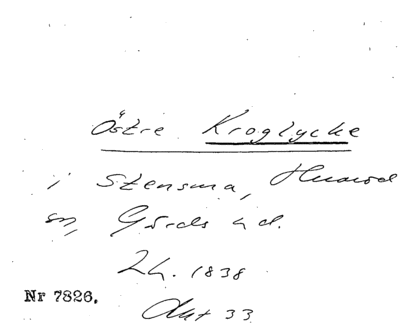 Östre Kroglycke
i Stensma, Huarod
sn, Gärds hd.
Lh. 1838
Nr 7826.
Akt 33